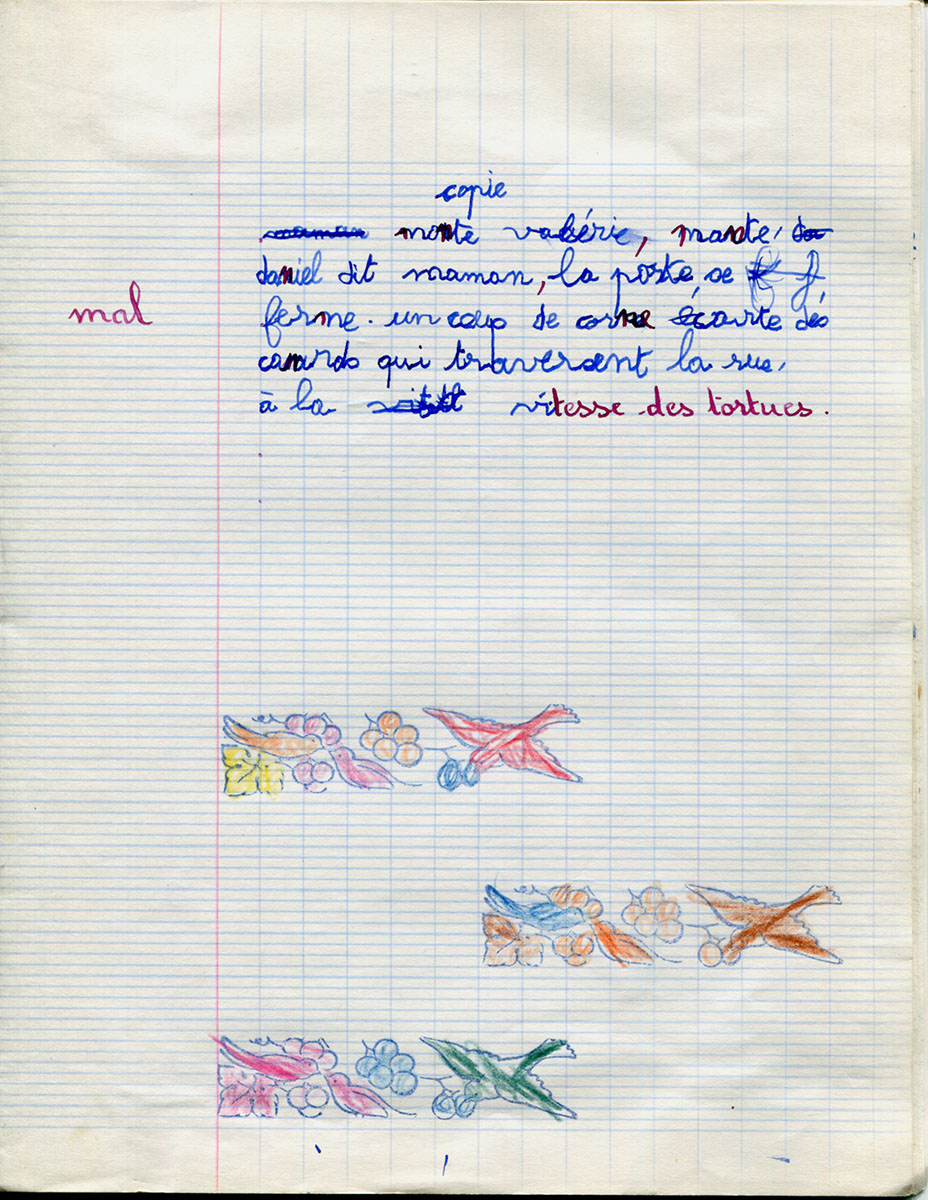 copie
maman monte valérie, monte, da
daniel dit maman, la poste, se f f
mal
ferme. un coup de corne écarte des
canards qui traversent la rue,
à la vitesse des tortues.